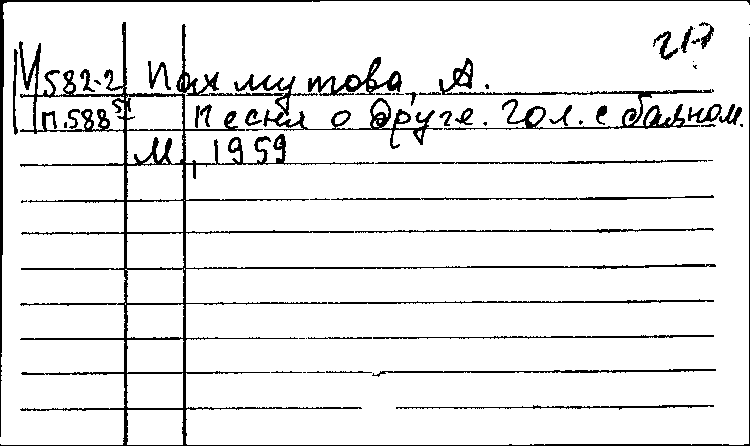 217
М582-2 Пахмутова, А.
П.588 51 Песня о друге. Гол. с баяном.
М., 1959